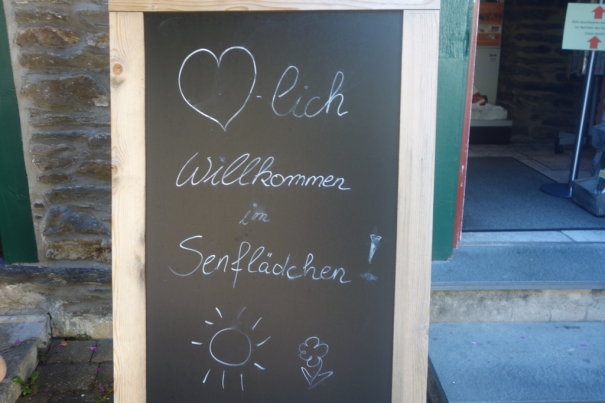 ♡-lich
Willkommen
im
Senflädchen!